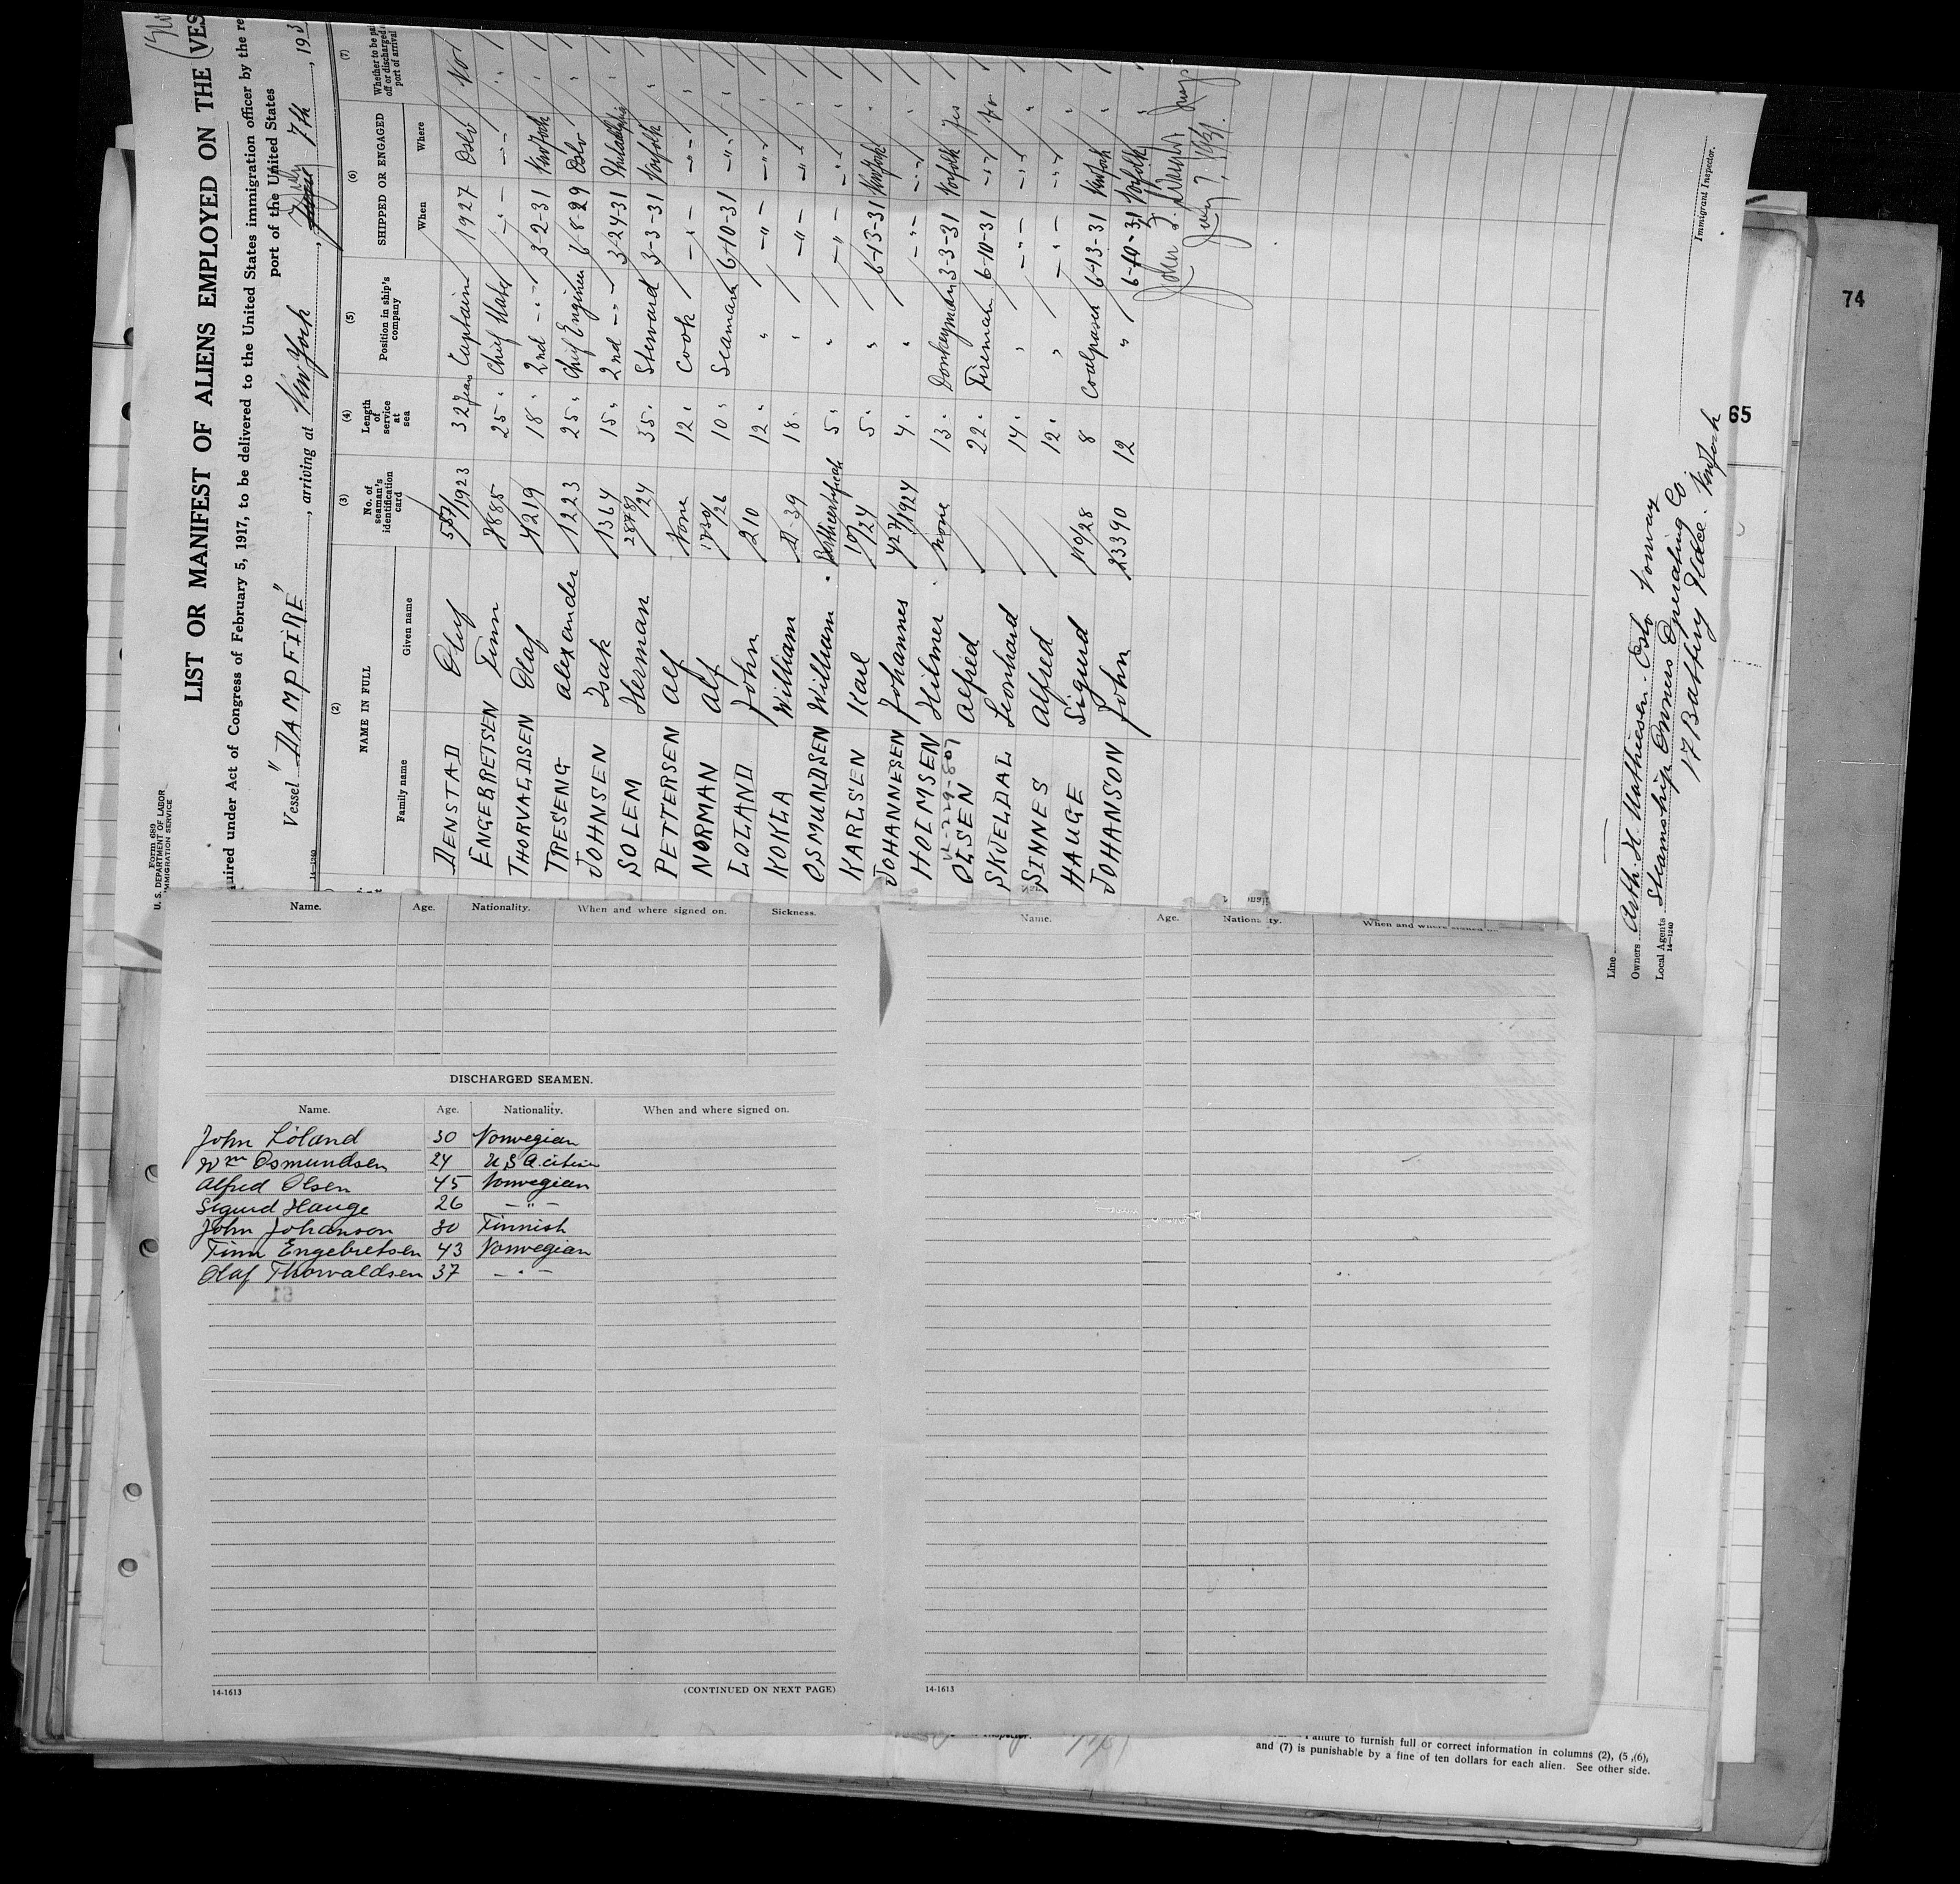 Form 689
U. S. DEPARTMENT OF LABOR
IMMIGRATION SERVICE
LIST OR MANIFEST OF ALIENS EMPLOYED ON THE (VES
uired under Act of Congress of February 5, 1917, to be delivered to the United States immigration officer by the re
port of the United States
Vessel "DAMPFIRE", arriving at New York, July 7th, 193
14-1240
(2)
NAME IN FULL
Family name
Given name
(3)
No. of seaman's identification card
(4)
Length of service at sea
(5)
Position in ship's company
(6)
SHIPPED OR ENGAGED
When
Where
(7)
Whether to be paid off or discharged at port of arrival
DENSTAD Oluf 557/1923 32 Years Captain 1927 Oslo No
ENGEBRETSEN Finn 8885 25 " Chief Mate " "
THORVALDSEN Olaf 4219 18 " 2nd " 3-2-31 New York "
TRESENG Alexander 1223 25 " Chief Engineer 6-8-29 Oslo "
JOHNSEN Isak 1364 15 " 2nd " 3-24-31 Philadelphia "
SOLEM Herman 28781/24 35 " Steward 3-3-31 Norfolk "
PETTERSEN Alf None 12 " Cook " " "
NORMAN Alf 1730/26 10 " Seaman 6-10-31 " "
LOLAND John 210 12 " " " " "
KOKLA William D-39 18 " " " " "
OSMUNDSEN William Birthcertificate 5 " " " " "
KARLSEN Karl 10/24 5 " " 6-13-31 New York "
JOHANNESEN Johannes 427/1924 4 " " " " "
HOLMSEN Hilmer None 13 " Donkeyman 3-3-31 Norfolk Yes
OLSEN Alfred 22 " Fireman 6-10-31 " No
SKJELDAL Leonhard 14 " " " " "
SINNES Alfred 12 " " " " "
HAUGE Sigurd 110/28 8 Coalpasser 6-13-31 New York "
JOHANSON John 23390 12 " 6-10-31 Norfolk "
July 7, 1931.
Line
Owners Arth. H. Mathiesen. Oslo Norway
Local Agents Steamship Owners Operating Co
14-1240
17 Battery Place. New York
Immigrant Inspector.
74
65
Name. Age. Nationality. When and where signed on. Sickness.
DISCHARGED SEAMEN.
Name. Age. Nationality. When and where signed on.
John Loland 30 Norwegian
Wm Osmundsen 24 U S A. citizen
Alfred Olsen 45 Norwegian
Sigurd Hauge 26 — " —
John Johanson 30 Finnish
Finn Engebretsen 43 Norwegian
Olaf Thorvaldsen 37 — " —
61
14-1613
(CONTINUED ON NEXT PAGE)
Name. Age. Nationality. When and where signed on.
14-1613
Inspector.
Failure to furnish full or correct information in columns (2), (5), (6),
and (7) is punishable by a fine of ten dollars for each alien. See other side.